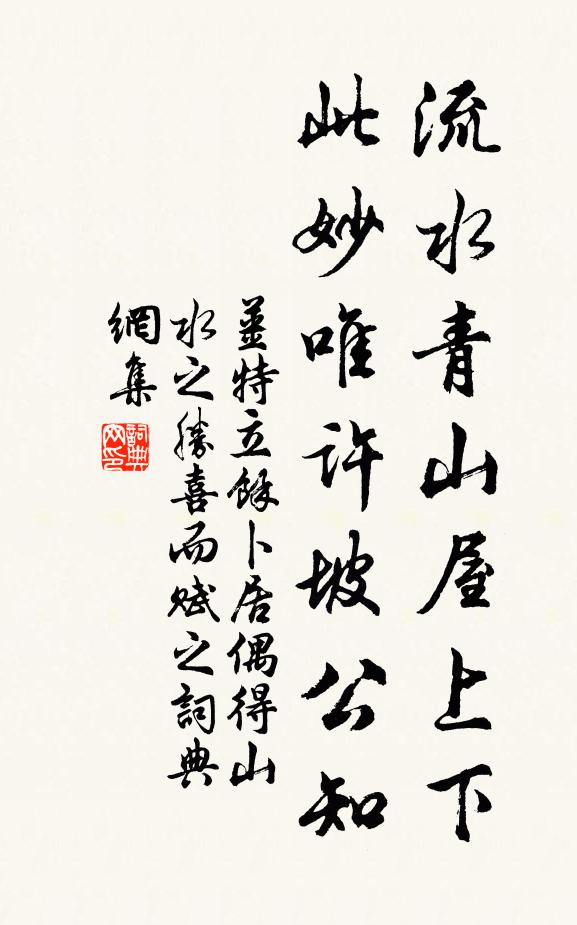 流水青山屋上下
此妙唯许坡公知
姜特立餘卜居偶得山
水之勝喜而赋之詞典
網集
詞典
网印